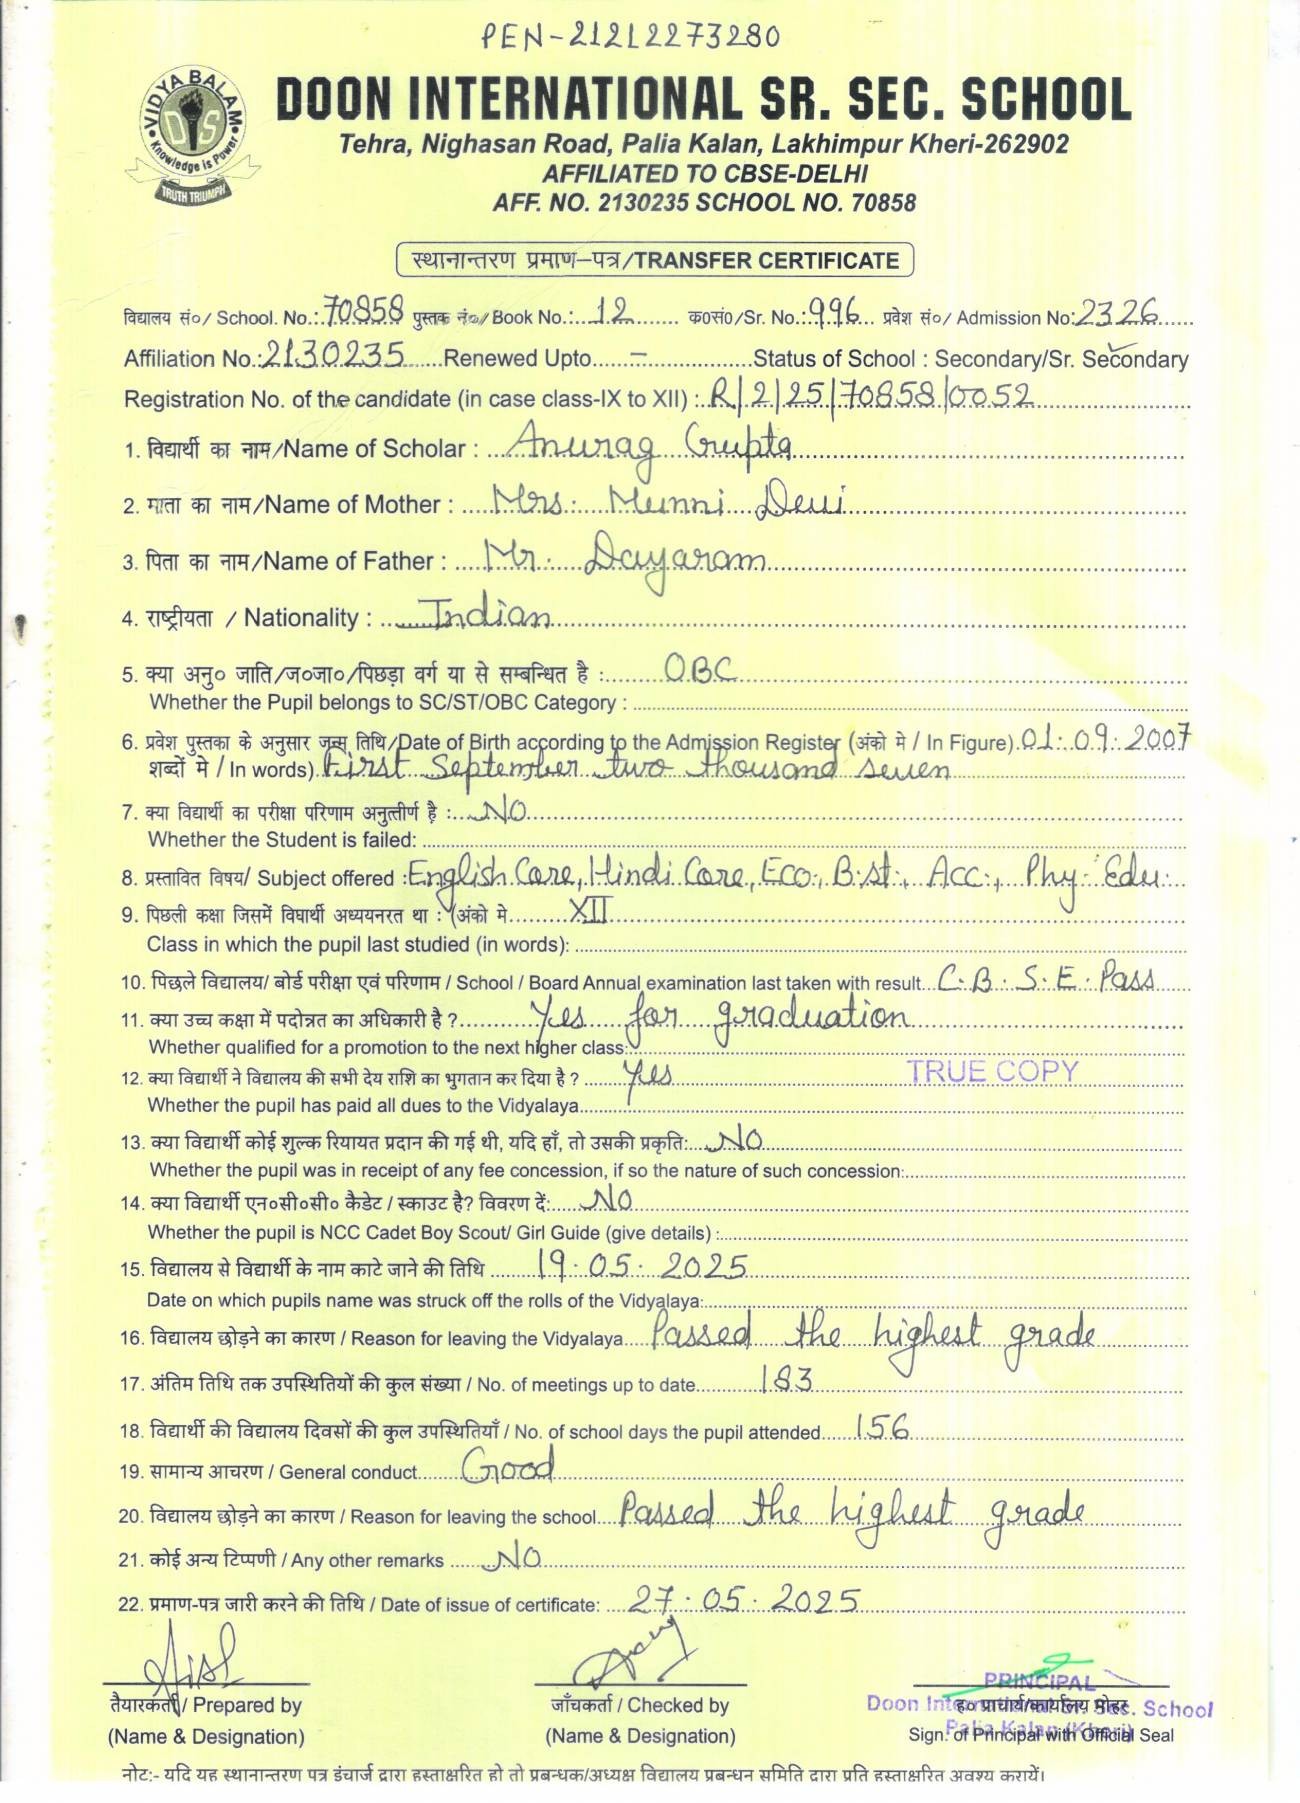 PEN-21212273280
VIDYA BALAM
DIS
Knowledge is Power
TRUTH TRIUMPH
DOON INTERNATIONAL SR. SEC. SCHOOL
Tehra, Nighasan Road, Palia Kalan, Lakhimpur Kheri-262902
AFFILIATED TO CBSE-DELHI
AFF. NO. 2130235 SCHOOL NO. 70858
स्थानान्तरण प्रमाण–पत्र/TRANSFER CERTIFICATE
विद्यालय सं०/ School. No.: 70858 पुस्तक नं०/ Book No.: 12 क०सं०/Sr. No.: 996 प्रवेश सं०/ Admission No: 2326
Affiliation No.: 2130235 Renewed Upto – Status of School : Secondary/Sr. Secondary
Registration No. of the candidate (in case class-IX to XII) : R/2/25/70858/0052
1. विद्यार्थी का नाम/Name of Scholar : Anurag Gupta
2. माता का नाम/Name of Mother : Mrs. Munni Devi
3. पिता का नाम/Name of Father : Mr. Dayaram
4. राष्ट्रीयता / Nationality : Indian
5. क्या अनु० जाति/ज०जा०/पिछड़ा वर्ग या से सम्बन्धित है : OBC
Whether the Pupil belongs to SC/ST/OBC Category :
6. प्रवेश पुस्तका के अनुसार जन्म तिथि/Date of Birth according to the Admission Register (अंको मे / In Figure). 01.09.2007
शब्दों मे / In words) First September two thousand seven
7. क्या विद्यार्थी का परीक्षा परिणाम अनुत्तीर्ण है : NO
Whether the Student is failed:
8. प्रस्तावित विषय/ Subject offered : English Core, Hindi Core, Eco., B.st., Acc., Phy. Edu.
9. पिछली कक्षा जिसमें विघार्थी अध्ययनरत था : (अंको मे XII
Class in which the pupil last studied (in words):
10. पिछले विद्यालय/ बोर्ड परीक्षा एवं परिणाम / School / Board Annual examination last taken with result C.B.S.E. Pass
11. क्या उच्च कक्षा में पदोन्नत का अधिकारी है ? Yes for graduation
Whether qualified for a promotion to the next higher class:
12. क्या विद्यार्थी ने विद्यालय की सभी देय राशि का भुगतान कर दिया है ? Yes TRUE COPY
Whether the pupil has paid all dues to the Vidyalaya
13. क्या विद्यार्थी कोई शुल्क रियायत प्रदान की गई थी, यदि हाँ, तो उसकी प्रकृति: NO
Whether the pupil was in receipt of any fee concession, if so the nature of such concession:
14. क्या विद्यार्थी एन०सी०सी० कैडेट / स्काउट है? विवरण दें: NO
Whether the pupil is NCC Cadet Boy Scout/ Girl Guide (give details) :
15. विद्यालय से विद्यार्थी के नाम काटे जाने की तिथि 19.05.2025
Date on which pupils name was struck off the rolls of the Vidyalaya:
16. विद्यालय छोड़ने का कारण / Reason for leaving the Vidyalaya Passed the highest grade
17. अंतिम तिथि तक उपस्थितियों की कुल संख्या / No. of meetings up to date 183
18. विद्यार्थी की विद्यालय दिवसों की कुल उपस्थितियाँ / No. of school days the pupil attended 156
19. सामान्य आचरण / General conduct Good
20. विद्यालय छोड़ने का कारण / Reason for leaving the school Passed the highest grade
21. कोई अन्य टिप्पणी / Any other remarks NO
22. प्रमाण-पत्र जारी करने की तिथि / Date of issue of certificate: 27.05.2025
PRINCIPAL
तैयारकर्ता / Prepared by जाँचकर्ता / Checked by ह० प्राचार्य/कार्यालय मोहर
Doon International Sr. Sec. School
(Name & Designation) (Name & Designation) Sign. of Principal with Official Seal
Palia Kalan (Kheri)
नोट:- यदि यह स्थानान्तरण पत्र इंचार्ज द्वारा हस्ताक्षरित हो तो प्रबन्धक/अध्यक्ष विद्यालय प्रबन्धन समिति द्वारा प्रति हस्ताक्षरित अवश्य करायें।